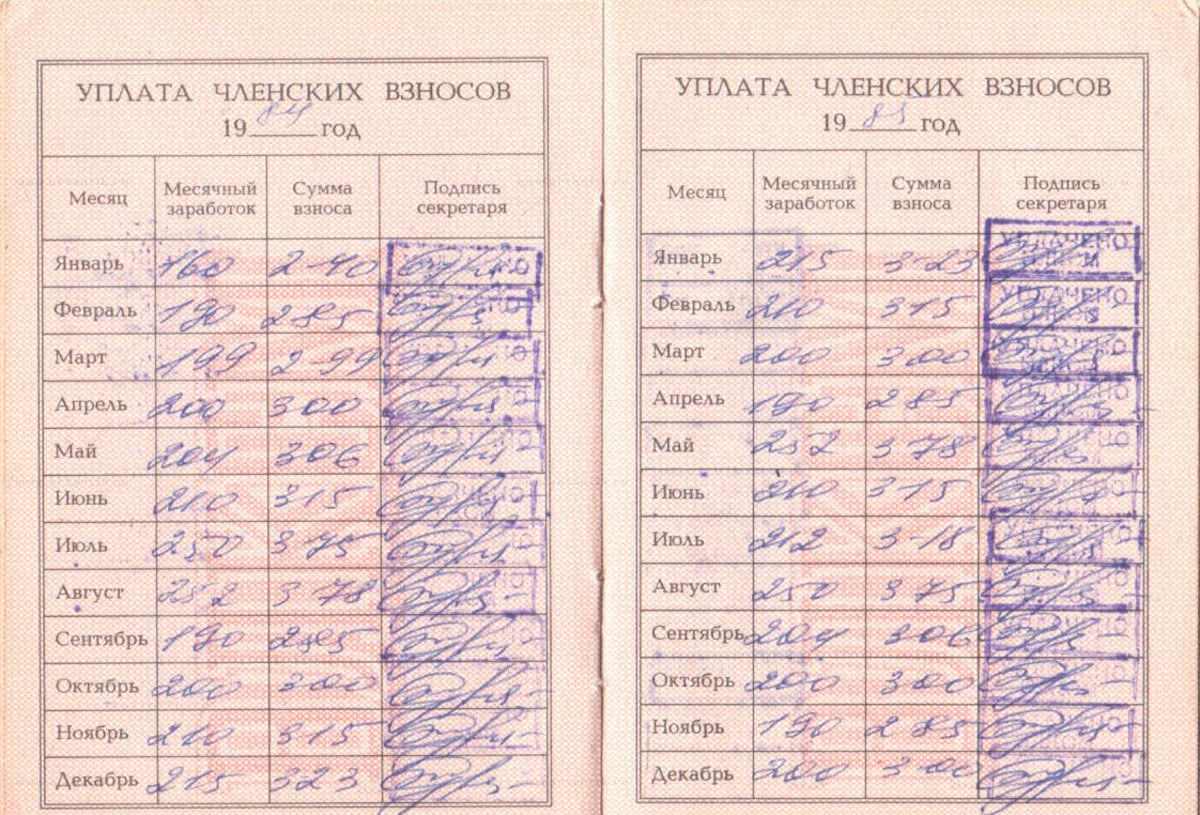 УПЛАТА ЧЛЕНСКИХ ВЗНОСОВ
1984 год
Месяц Месячный заработок Сумма взноса Подпись секретаря
Январь 160 2-40
Февраль 190 285
Март 199 2-99
Апрель 200 300
Май 204 306
Июнь 210 315
Июль 250 375
Август 252 378
Сентябрь 190 285
Октябрь 200 300
Ноябрь 210 315
Декабрь 215 323
УПЛАТА ЧЛЕНСКИХ ВЗНОСОВ
1985 год
Месяц Месячный заработок Сумма взноса Подпись секретаря
Январь 215 3-23 УПЛАЧЕНО
Февраль 210 315 УПЛАЧЕНО
Март 200 300
Апрель 190 285
Май 252 378
Июнь 210 315
Июль 212 3-18
Август 250 375
Сентябрь 204 306
Октябрь 200 300
Ноябрь 190 285
Декабрь 200 300